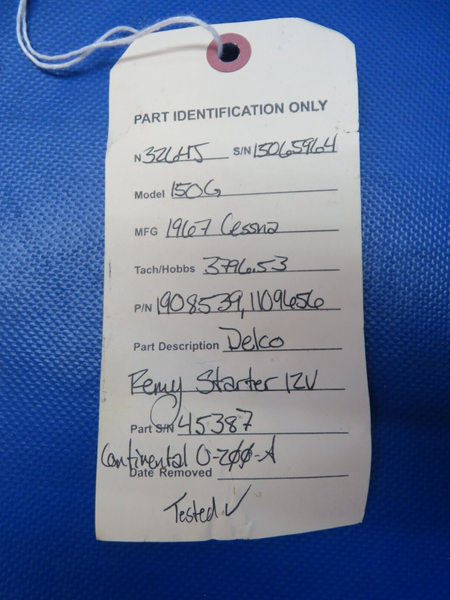 PART IDENTIFICATION ONLY
N 3264J S/N 15065964
Model 150G
MFG 1967 Cessna
Tach/Hobbs 3796.53
P/N 1908539, 1109656
Part Description Delco
Remy Starter 12V
Part S/N 45387
Continental O-200-A
Date Removed
Tested ✓